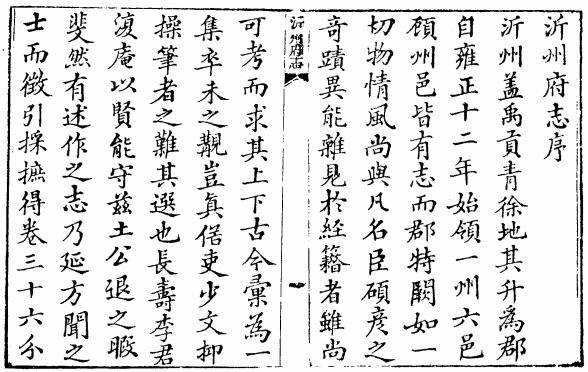 沂州府志序
沂州蓋禹貢青徐地其升爲郡
自雍正十二年始領一州六邑
頋州邑皆有志而郡特闕如一
切物情風尚與凡名臣碩彦之
竒蹟異能雜見於經籍者雖尚
沂州府志
可考而求其上下古今彙為一
集卒未之觀豈真俗吏少文抑
操筆者之難其選也長壽李君
澓庵以賢能守兹土公退之暇
斐然有述作之志乃延方聞之
士而徵引採摭得卷三十六分